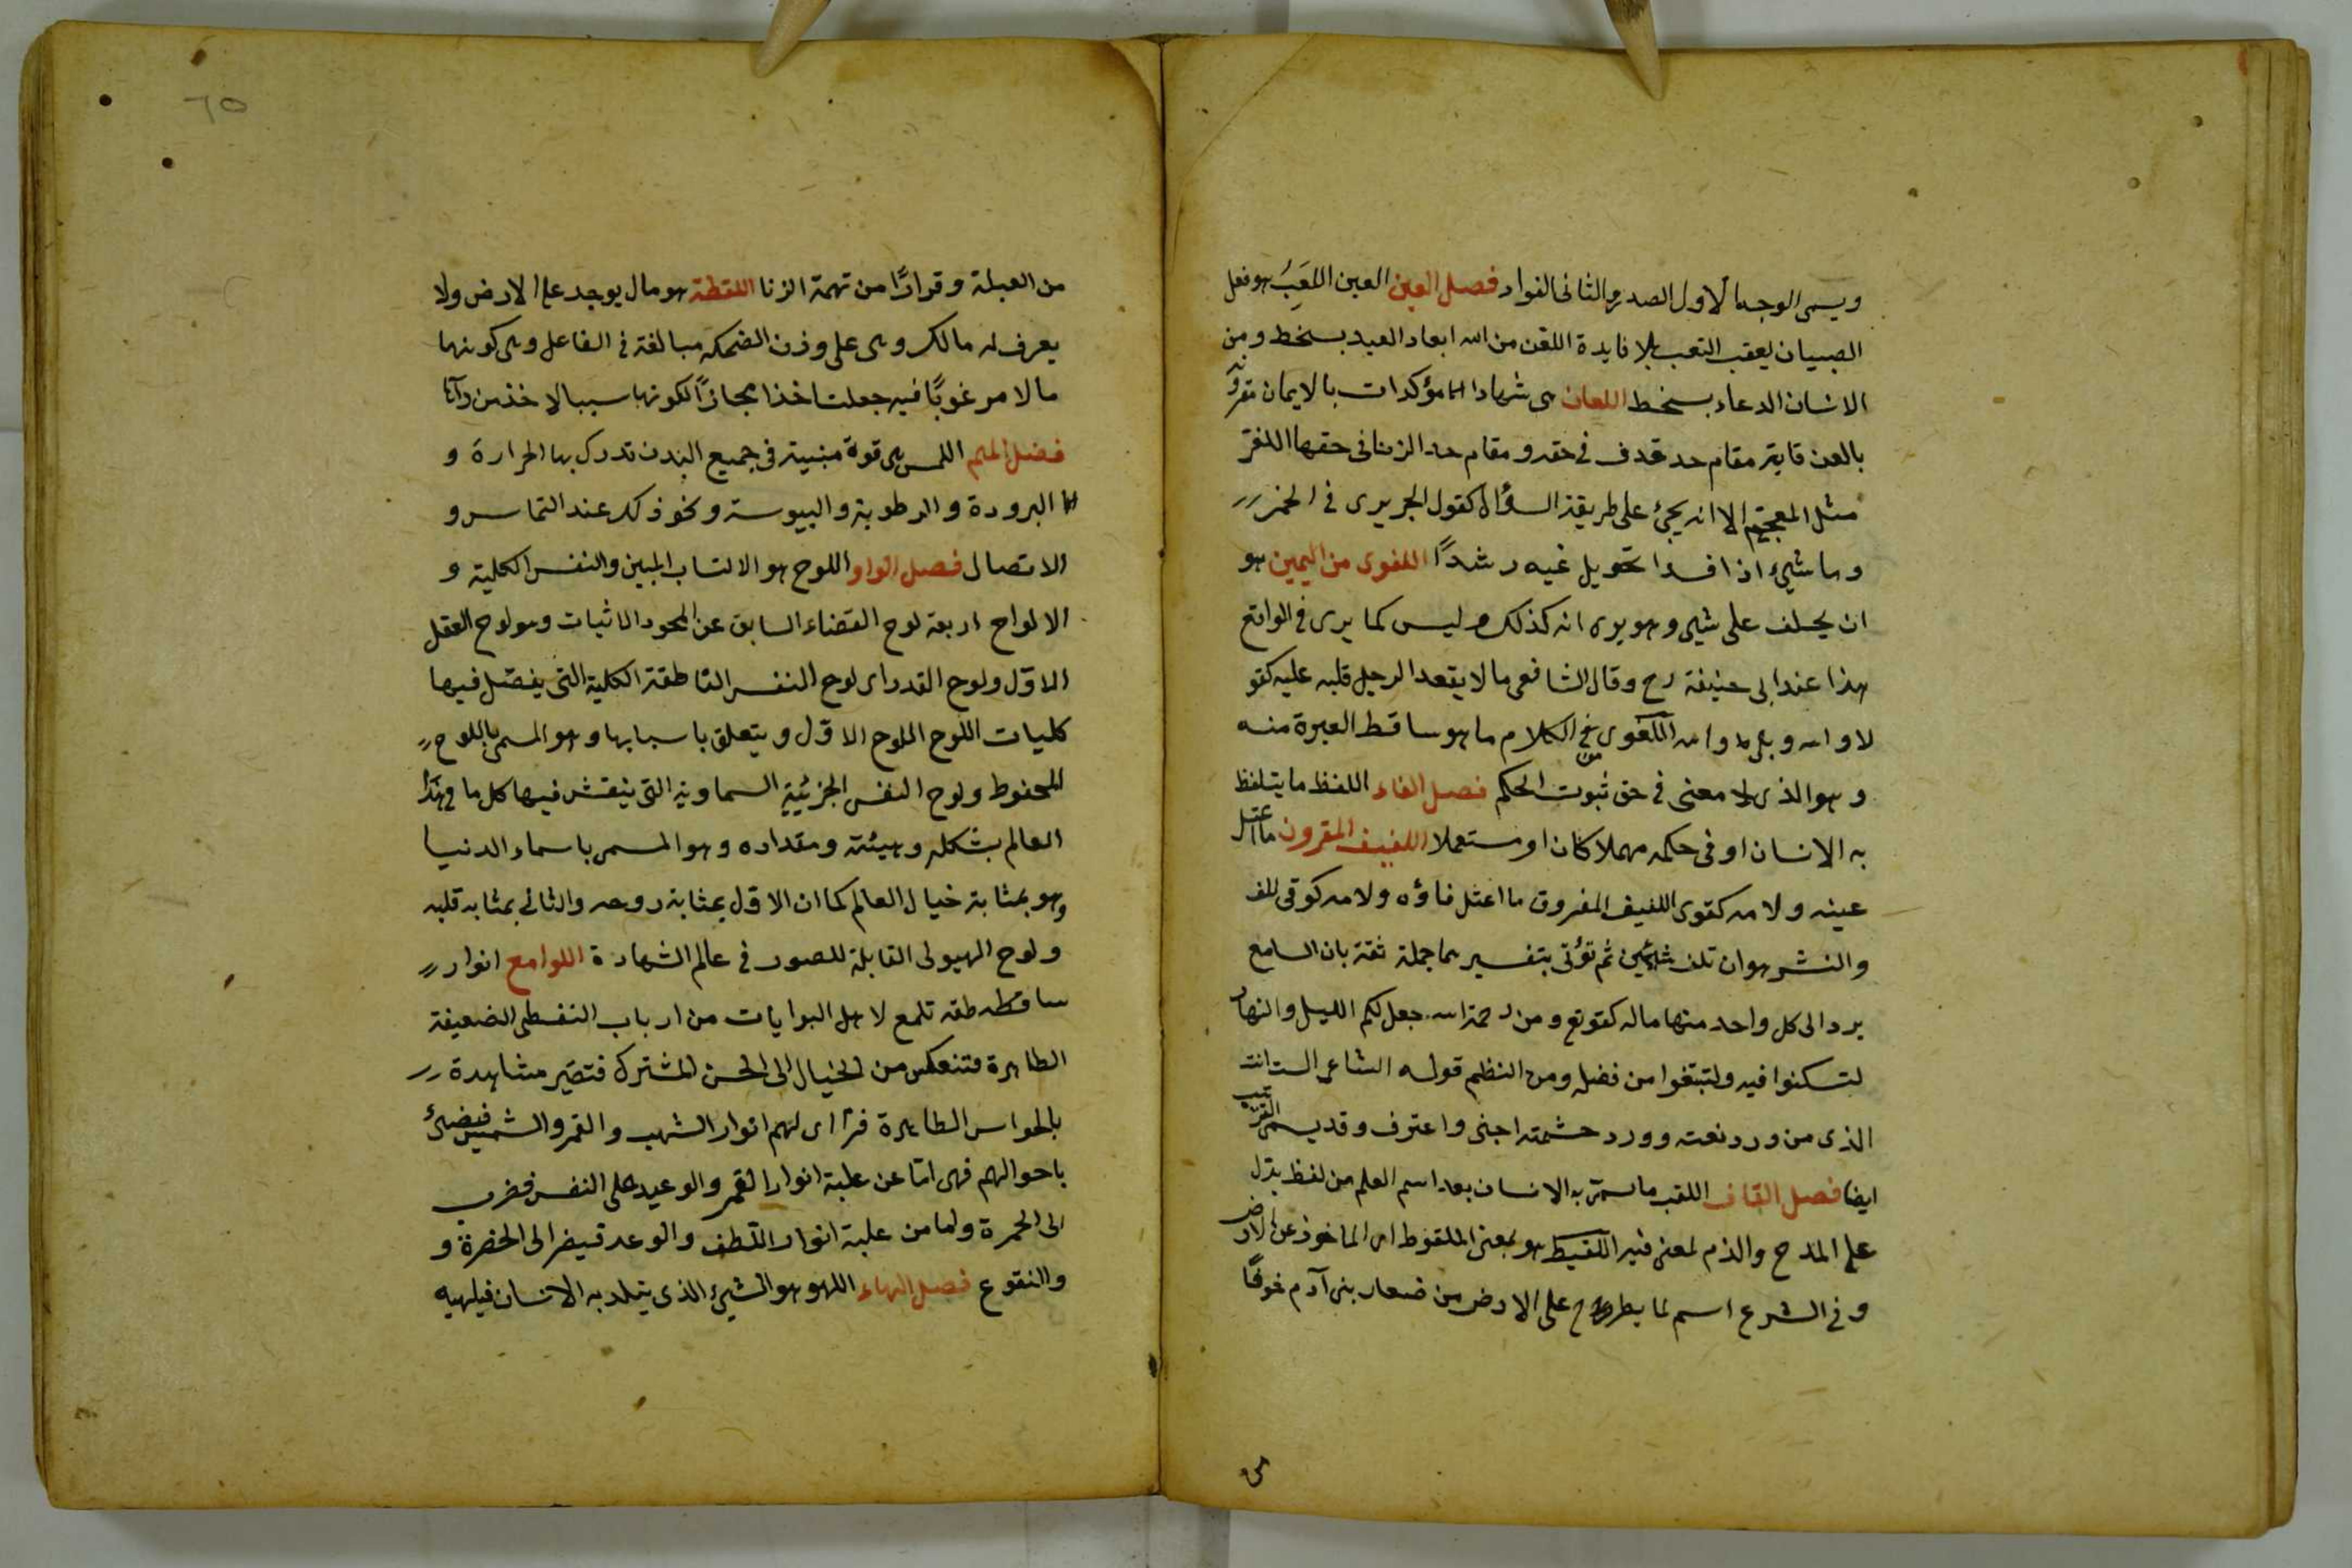 ويسمى الوجه الاول الصدر والثانى الفواد فصل العين العين اللعَبُ هو فعل
الصبيان يعقب التعب بلا فايدة اللعن من الله ابعاد العبد بسخط ومن
الانسان الدعاء بسخط اللعان هى شهادات مؤكدات بالايمان مقرونة
بالعن قايم مقام حد قدف فى حقه ومقام حد الزنا فى حقها اللغز
مثل المعجم الا انه يجئ على طريقة السؤال كقول الحريرى فى الخمر
وما شئ اذا فسدا تحويل غيه رشدًا اللغوى من اليمين هو
ان يحلف على شئ وهو يرى انه كذلك وليس كما يرى فى الواقع
هذا عند ابى حنيفة رح وقال الشافعى ما لا يقعد الرجل قلبه عليه كقو
لا والله وبلى والله اللغوى من الكلام ما هو ساقط العبرة منه
وهو الذى لا معنى فى حق ثبوت الحكم فصل الفاء اللفظ ما يتلفظ
به الانسان او فى حكمه مهملا كان او مستعملا اللفيف المقرون ما اعتل
عينه ولامه كقوى اللفيف المفروق ما اعتل فاؤه ولامه كوقى اللف
والنشر هو ان تلف شيئين ثم تؤتى بتفسيرهما جملة ثقة بان السامع
يرد الى كل واحد منها ماله كقوتع ومن رحمة الله جعل لكم الليل والنهار
لتسكنوا فيه ولتبتغوا من فضله ومن النظم قوله الشاعر الست انت
الذى من ورد نعته وورد حشمته اجنى واعترف وقد يسمى الترتيب
ايضا فصل القاف اللقب ما يسمى به الانسان بعد اسم العلم من لفظ يدل
على المدح والذم لمعنى فيه اللقيط هو بمعنى الملقوط اى الماخوذ عن الارض
وفى الشرع اسم لما يطرح على الارض من صغار بنى آدم خوفًا
من
٦٥
من العيلة وقرارًا من تهمة الزنا اللقطة هو مال يوجد على الارض ولا
يعرف له مالك وهى على وزن الضحكه مبالغة فى الفاعل وهى كونها
مالا مرغوبًا فيه جعلت اخذا مجازًا لكونها سببا لاخذ من رآها
فصل الميم اللمس هى قوة منبتة فى جميع البدن تدرك بها الحرارة و
البرودة والرطوبة واليبوسة ونحو ذلك عند التماس و
الاتصال فصل الواو اللوح هو الكتاب المبين والنفس الكلية و
الالواح اربعة لوح القضاء السابق عن المحو والاثبات وهو لوح العقل
الاوّل ولوح القدر اى لوح النفس الناطقة الكلية التى يفصّل فيها
كليات اللوح اللوح الاوّل ويتعلق باسبابها وهو المسمى باللوح
المحفوظ ولوح النفس الجزئية السماوية التى ينقش فيها كل ما فى هذا
العالم بشكله وهيئته ومقداره وهو المسمى باسماء الدنيا
وهو بمثابة خيال العالم كما ان الاوّل بمثابة روحه والثانى بمثابه قلبه
ولوح الهيولى القابلة للصور فى عالم الشهادة اللوامع انوار
ساقطه طقه تلمع لاهل البدايات من ارباب النفس الضعيفة
الطاهرة فتنعكس من الخيال الى الحس المشترك فتصير مشاهدة
بالحواس الطاهرة فترااى لهم انوار الشهب والقمر والشمس فيضئ
باحوالهم فهى امّا عن غلبة انوار القهر والوعيد على النفس فضرب
الى الحمرة واما من غلبة انوار اللطف والوعد فيضر الى الخضرة و
والنقوع فصل الهاء اللهو هو الشئ الذى يتلد به الانسان فيلهيه